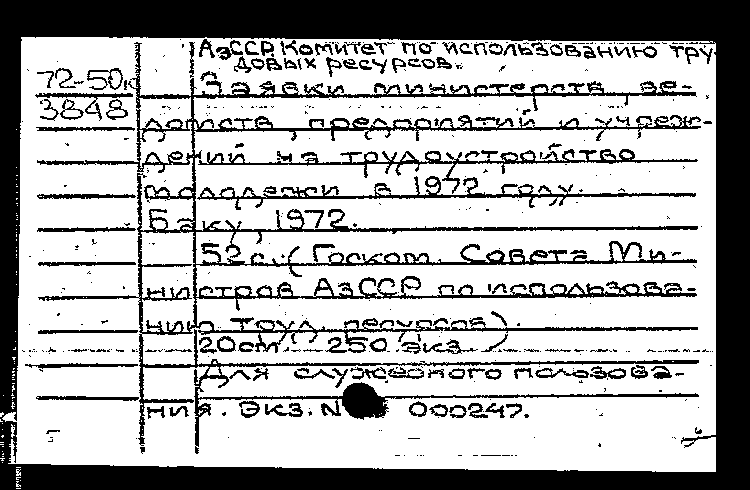 АзССР. Комитет по использованию тру-
довых ресурсов.
72-50к
3848
Заявки министерств, ве-
домств, предприятий и учреж-
дений на трудоустройство
молодежи в 1972 году.
Баку, 1972.
52с. (Госком. Совета Ми-
нистров АзССР по использова-
нию труд. ресурсов).
20см. 250 экз.
Для служебного пользова-
ния. Экз. N 000247.